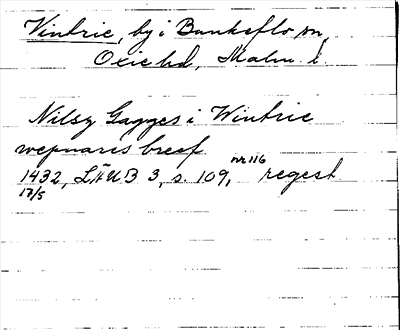 Vintrie, by i Bunkeflo sn,
Oxie hd, Malm. l.
Nilsz Gagges i Wintrie
wepnares breef
1432, LÄUB 3, s. 109, nr 116 regest
17/5